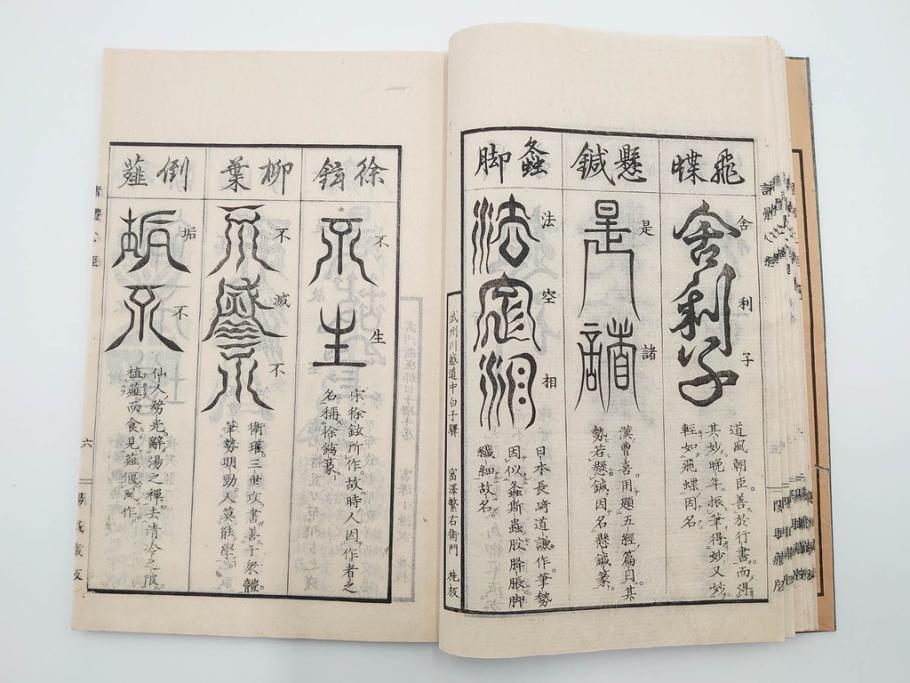 飛蝶
舍利子
舍
利
子
道風朝臣善於行書而得
其妙晚年振筆得妙又妙
輕如飛蝶因名
懸鍼
是諸
是
諸
漢曹喜用題五經篇目其
勢若懸鍼因名懸鍼篆
螽脚
法空相
法
空
相
日本長崎道謙作筆勢
因似螽斯蟲股脺脹脚
纖細故名
武州川越道中白子驛 富澤繁右衛門 施板
徐鉉
不生
不
生
宋徐鉉所作故時人因作者之
名稱徐鉉篆
柳葉
不滅不
不
滅
不
衛瓘三世攻書善于衆體
筆勢明勁人莫能學
倒薤
垢不
垢
不
仙人務光辭湯之禪去清冷之陂
植薤而食見薤偃風作
六